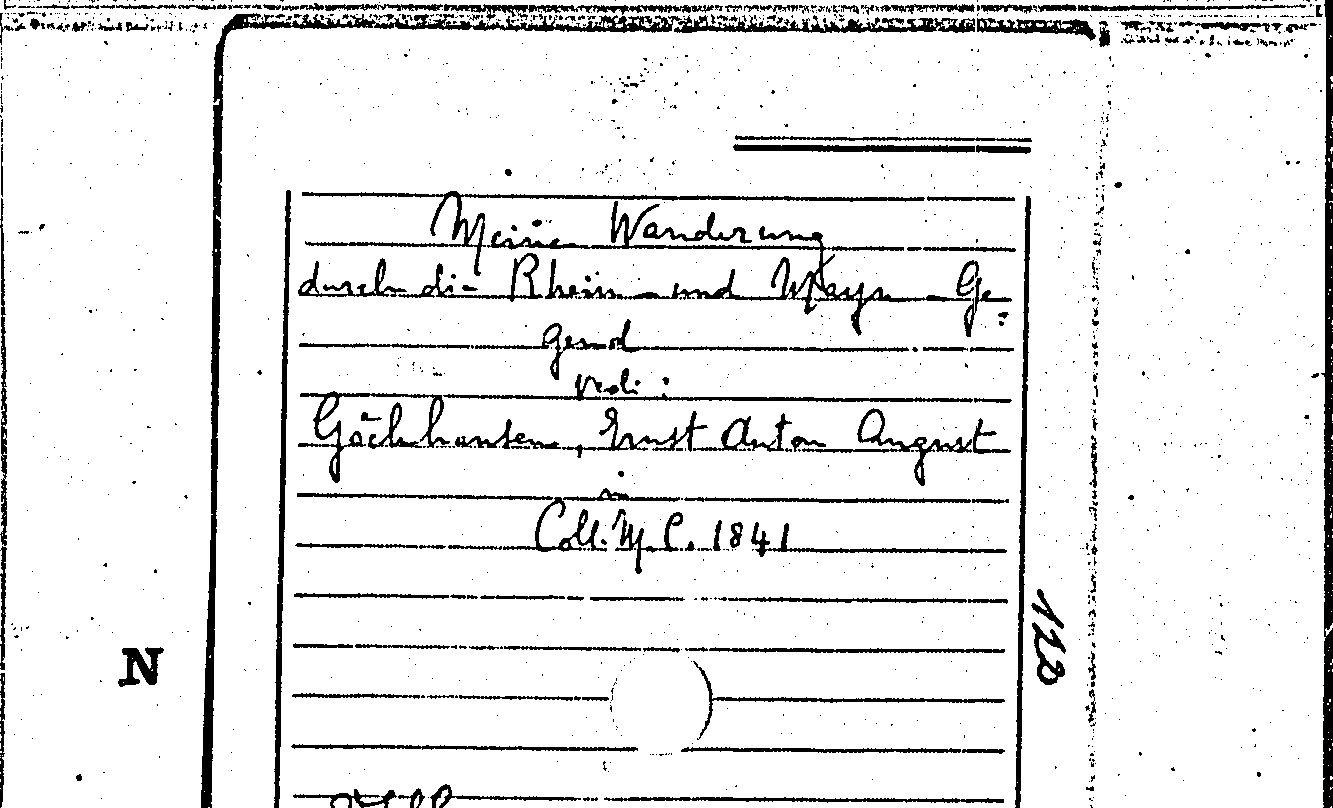 Meine Wanderung
durch die Rhein- und Mayn-Ge=
gend
vedi:
Göchhausen, Ernst Anton August
in
Coll. M. C. 1841
122
N